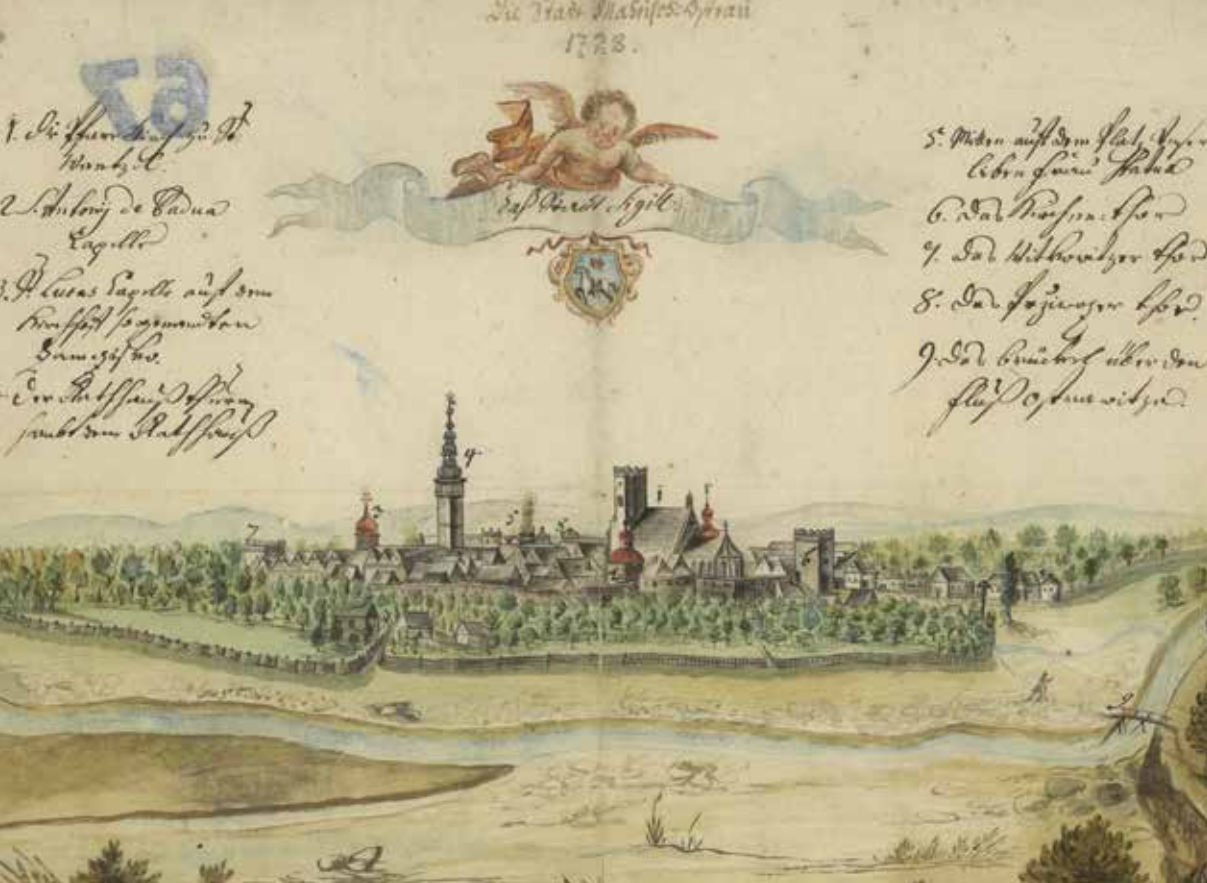 Die Stadt Mährisch-Ostrau
1728.
67
1. Die Pfarr Kirche zu St.
Wentzel.
2. S. Antonij de Padua
Capelle
3. St. Lucas Capelle auff dem
Kirchhoff so genandten
Der Rathhauß Thurm
sambt dem Rathhauß
Daß Stadt Sigill:
5. Mitten auff dem Platz Unser
lieben Frauen Statua
6. Das Kirchen-Thor
7. Das Witkowitzer Thor
8. Das Prziwoser Thor
9. Das brückel über den
fluß Ostrawitza.
4
7
5
9